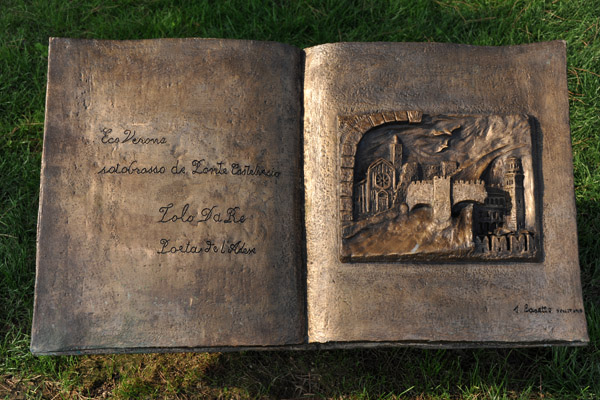 Eco Verona
sotobrasso de Ponte Castelvecio
Tolo Da Re
Poeta de l'Adese